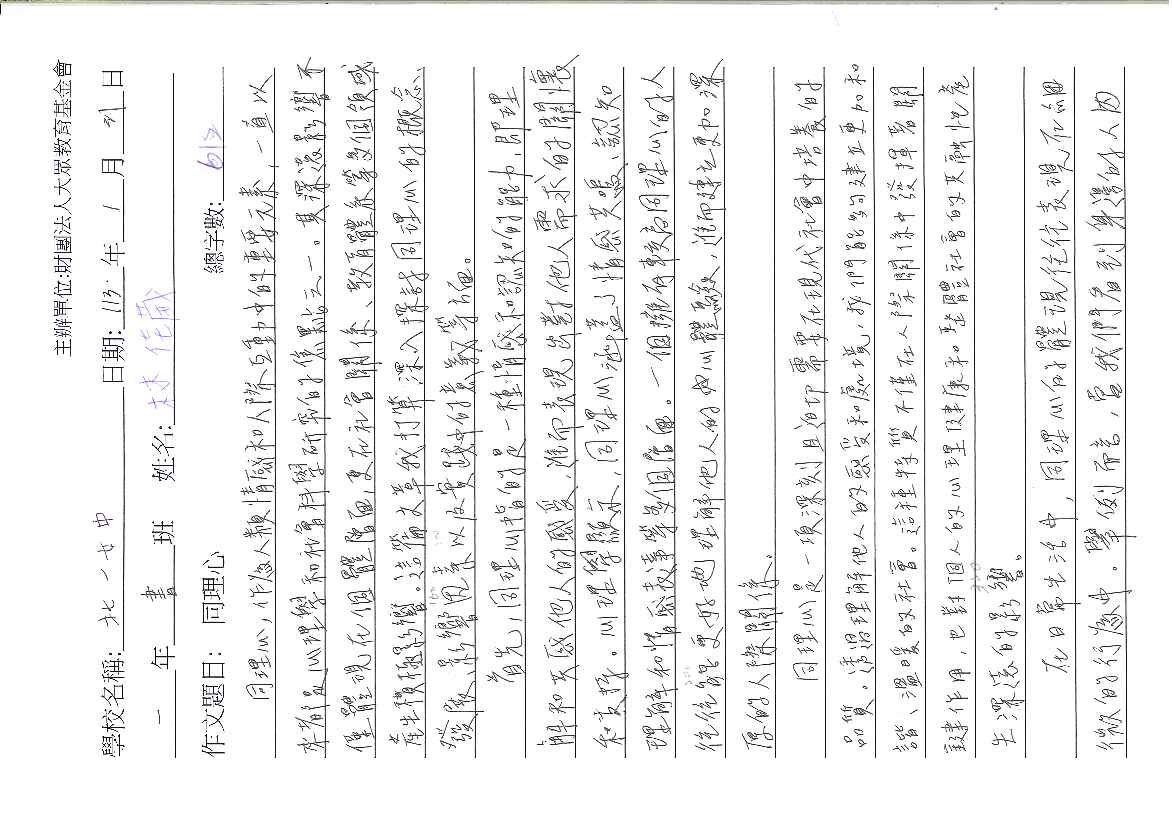 主辦單位:財團法人大眾教育基金會
學校名稱: 北一女中 日期: 113 年 1 月 31 日
一 年 書 班 姓名: 林佳葳
作文題目: 同理心 總字數: 612
同理心,作為人類情感和人際互動中的重要元素,一直以
來都是心理學和社會科學研究的焦點之一。其深遠影響不
僅體現在個體層面,更在社會關係、教育體系等多個領域
產生積極影響。這篇文章我打算深入探討同理心的概念、
發展、影響因素以及實踐中的意義等方面。
首先,同理心指的是一種情感和認知的能力,即理
解和共感他人的感受,進而表現出對他人需求的關懷
和支持。心理學顯示,同理心涵蓋了情感共鳴、認知
理解和情感表達等多個層面。一個擁有較高同理心的人
往往能更好地理解他人的內心體驗,進而建立更加深
厚的人際關係。
同理心是一項深刻且迫切需要在現代社會中培養的
品質。透過理解他人的感受和處境,我們能夠建立更加和
諧、溫暖的社會。這種特質不僅在人際關係中發揮著關
鍵作用,也對個人的心理健康和整體社會的友融性產
生深遠的影響。
在日常生活中,同理心的體現往往表現在細
微的行為中。舉例而言,當我們看到身邊的人因